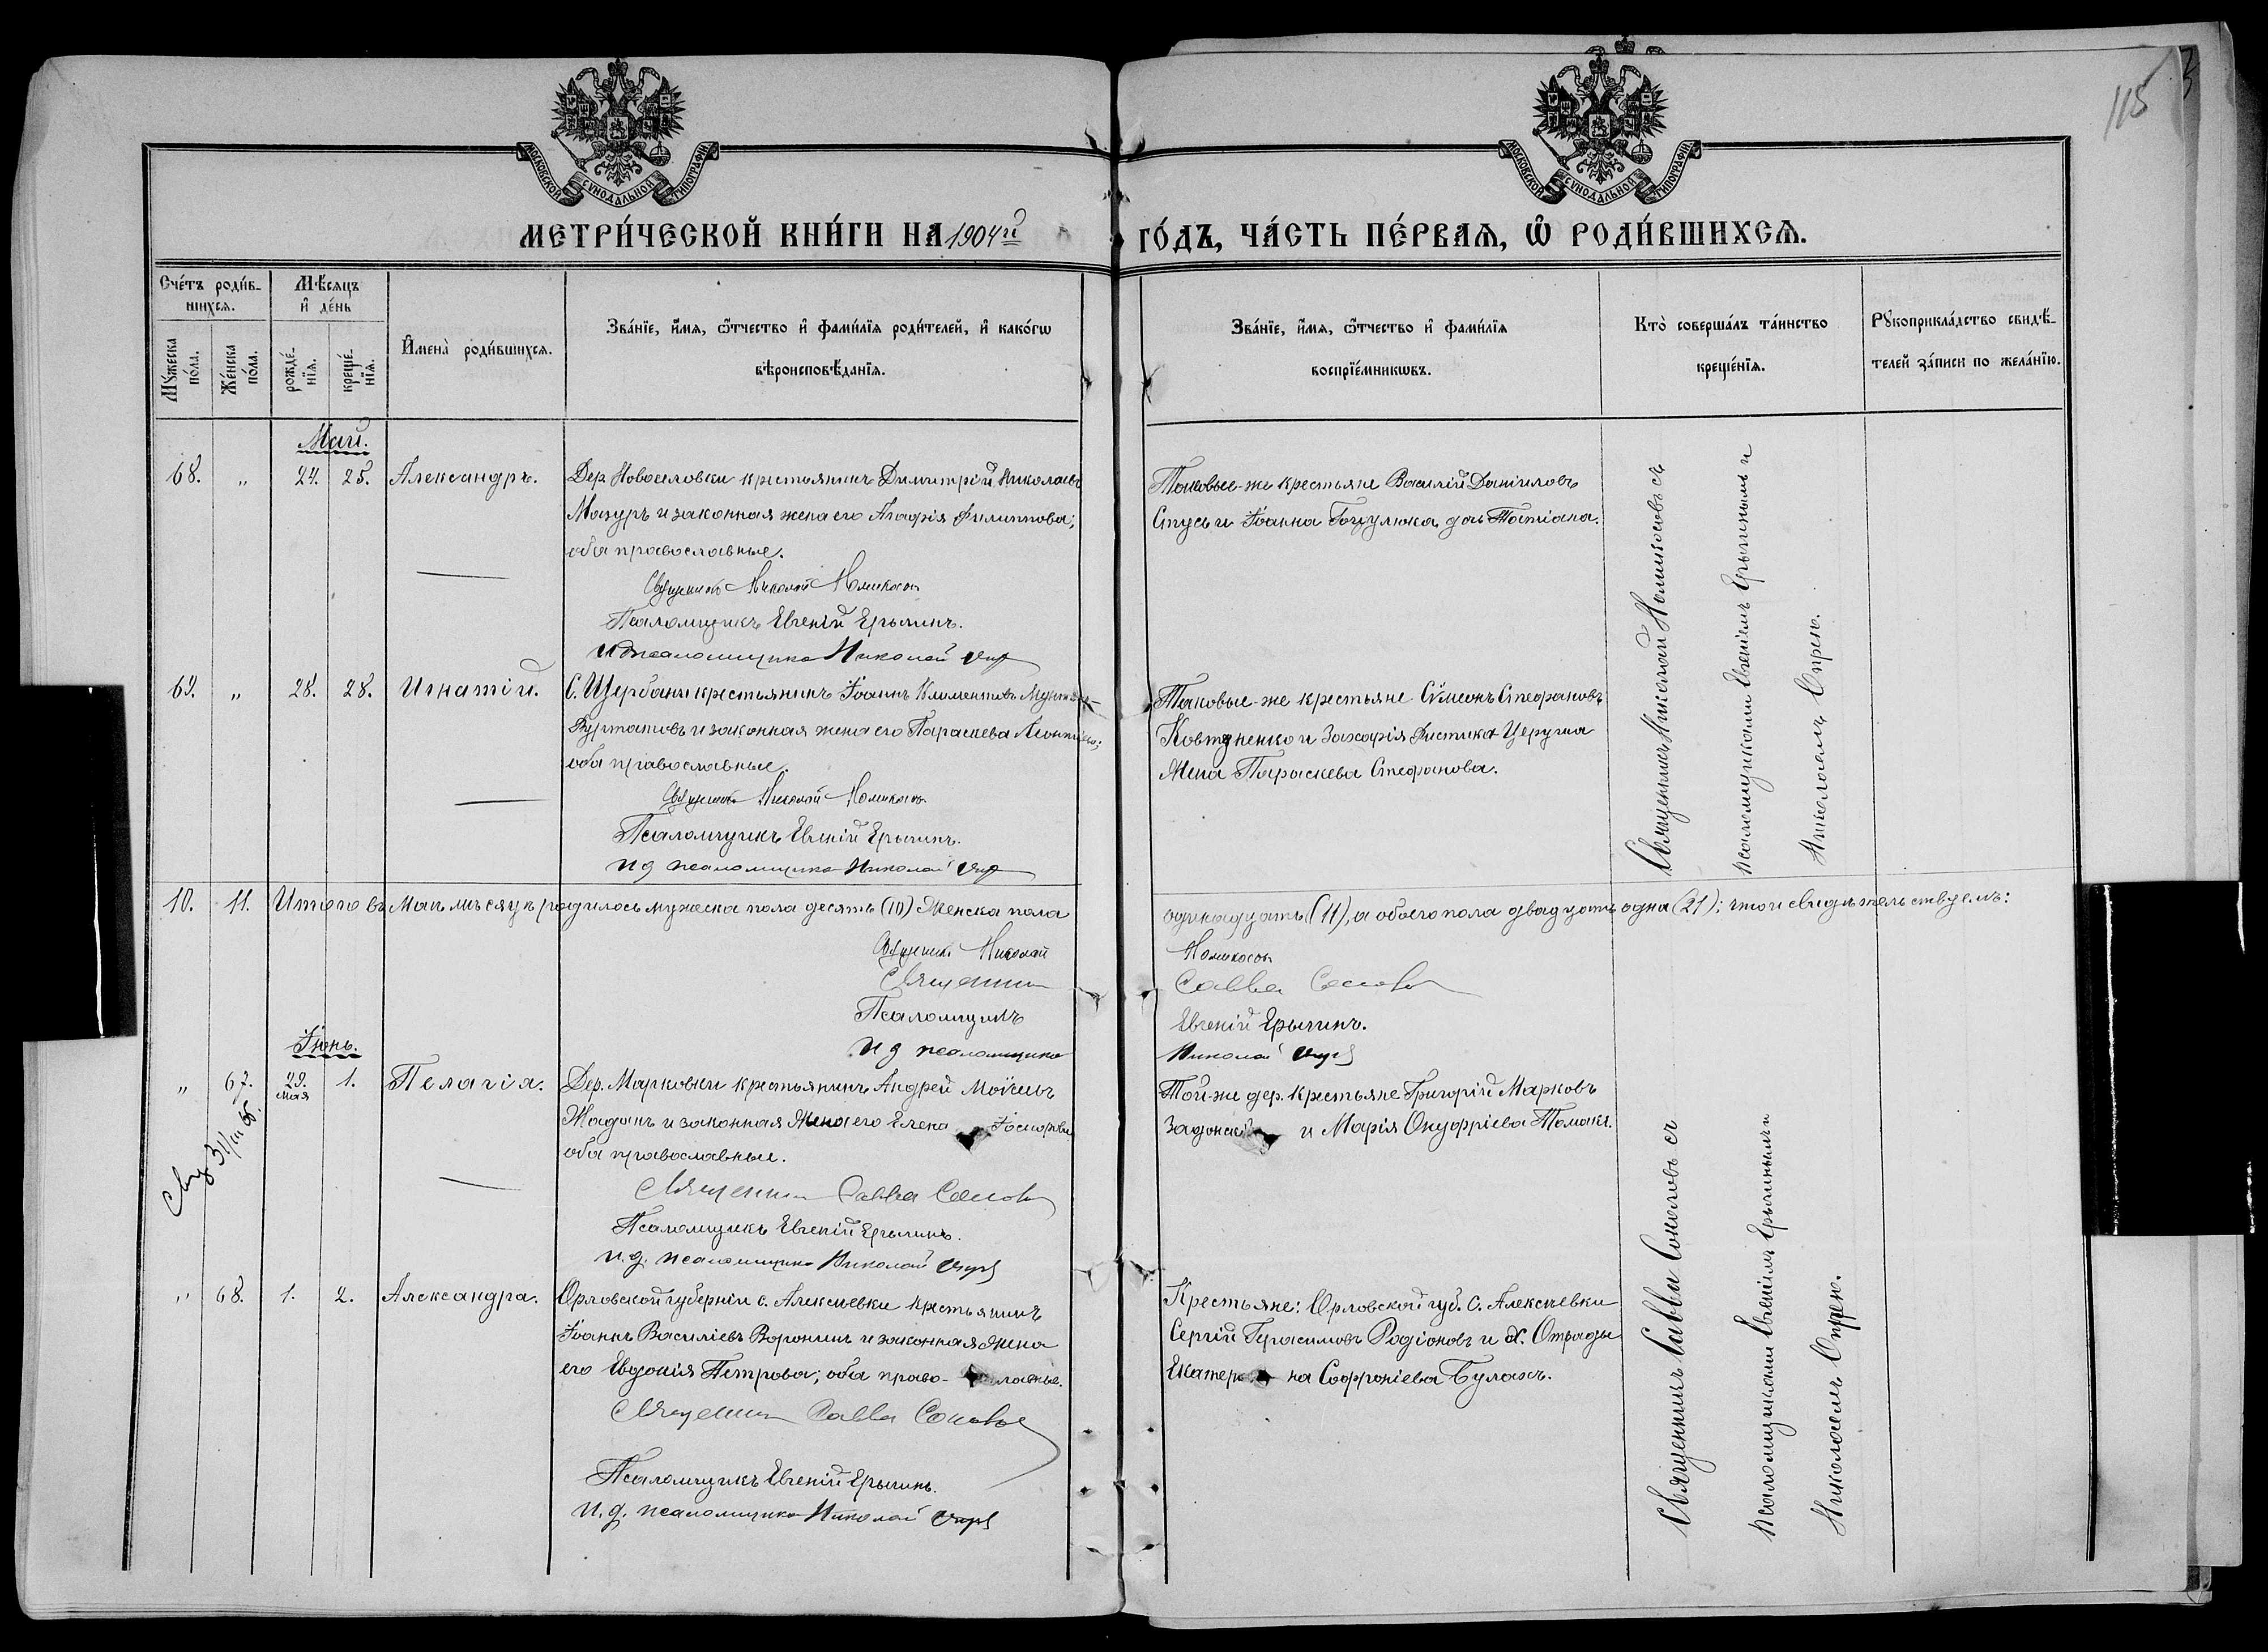 115
МОСКОВСКОЙ СѴНОДАЛЬНОЙ ТИПОГРАФІИ
МОСКОВСКОЙ СѴНОДАЛЬНОЙ ТИПОГРАФІИ
МЕТРИ́ЧЕСКОЙ КНИ́ГИ НА 1904й ГО́ДЪ, ЧА́СТЬ ПЕ́РВАѦ, Ѡ҆ РОДИ́ВШИХСѦ.
Сче́тъ роди́в-
шихсѧ.
Мꙋ́жеска по́ла.
Же́нска по́ла.
Мѣ́сѧцъ
и҆ де́нь
рожде́-
нїѧ.
креще́-
нїѧ.
И҆мена̀ роди́вшихсѧ.
Зва́нїе, и҆́мѧ, ѻ҆́тчество и҆ фами́лїѧ роди́телей, и҆ како́гѡ
вѣроисповѣ́данїѧ.
Зва́нїе, и҆́мѧ, ѻ҆́тчество и҆ фами́лїѧ
воспрїе́мникѡвъ.
Кто̀ соверша́лъ та́инство
креще́нїѧ.
Рꙋкоприкла́дство свидѣ́-
телей за́писи по жела́нїю.
Май.
68. „ 24. 25. Александръ.
Дер. Новоселовки крестьянинъ Димитрій Николаевъ
Мазуръ и законная жена его Агафія Филиппова;
оба православные.
Священникъ Николай Номикосовъ
Псаломщикъ Евгеній Ерыгинъ.
И д псаломщика Николай
Таковые-же крестьяне Василій Даніиловъ
Стусь и Іоанна Гоцулюка дочь Татіана.
Священникъ Николай Номикосовъ съ
псаломщиками Евгеніемъ Ерыгинымъ и
Николаемъ
69. „ 28. 28. Игнатій.
С. Щербани крестьянинъ Іоаннъ Климентовъ
и законная жена его Параскева Леонтіева;
оба православные.
Священникъ Николай Номикосовъ
Псаломщикъ Евгеній Ерыгинъ.
И д псаломщика Николай
Таковые-же крестьяне Сѵмеонъ Стефановъ
Ковтуненко и Захарія Фистика
жена Параскева Стефанова.
10. 11. Итого въ Маѣ мѣсяцѣ родилось мужеска пола десять (10) женска пола одинадцать (11), а обоего пола двадцать одна (21); что и свидѣтельствуемъ:
Священникъ Николай Номикосовъ
Священникъ Савва Соколовъ
Псаломщикъ Евгеній Ерыгинъ.
И д псаломщика Николай
Іюнь.
„ 67. 29. мая 1. Пелагія.
Дер. Марковки крестьянинъ Андрей Моѵсеевъ
Жаданъ и законная жена его Елена Іосифова
оба православные.
Священникъ Савва Соколовъ
Псаломщикъ Евгеній Ерыгинъ.
И. д. псаломщика Николай
Той-же дер. крестьяне Григорій Марковъ
Задонскій и Марія Онуфріева Томакъ.
Священникъ Савва Соколовъ съ
псаломщиками Евгеніемъ Ерыгинымъ и
Николаемъ
„ 68. 1. 2. Александра.
Орловской губерніи с. Алексѣевки крестьянинъ
Іоаннъ Василіевъ Воронинъ и законная жена
его Евдокія Петрова; оба право-славные.
Священникъ Савва Соколовъ
Псаломщикъ Евгеній Ерыгинъ.
И. д. псаломщика Николай
Крестьяне: Орловской губ. с. Алексѣевки
Сергій Герасимовъ Родіоновъ и х. Отрады
Екатерина Софроніева Булахъ.